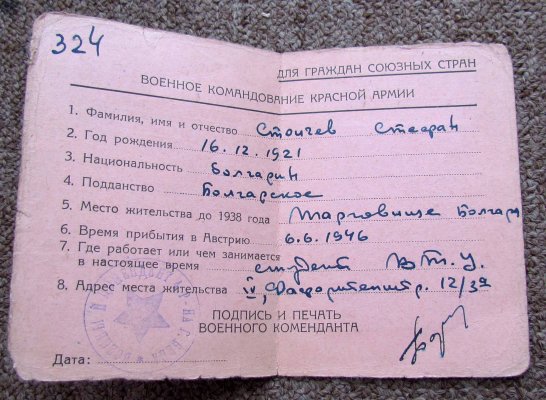 324
ДЛЯ ГРАЖДАН СОЮЗНЫХ СТРАН
ВОЕННОЕ КОМАНДОВАНИЕ КРАСНОЙ АРМИИ
1. Фамилия, имя и отчество Стоичев Стефан
2. Год рождения 16.12.1921
3. Национальность Болгарин
4. Подданство Болгарское
5. Место жительства до 1938 года Тарговище Болгар
6. Время прибытия в Австрию 6.6.1946
7. Где работает или чем занимается
в настоящее время студент В.Т.У.
8. Адрес места жительства IV, Фаворитенштр. 12/39
ПОДПИСЬ И ПЕЧАТЬ
ВОЕННОГО КОМЕНДАНТА
Дата: